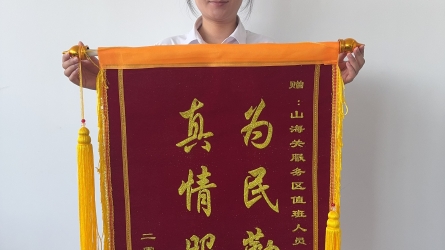 赠：山海关服务区值班人员
为民勤
真情照
二零